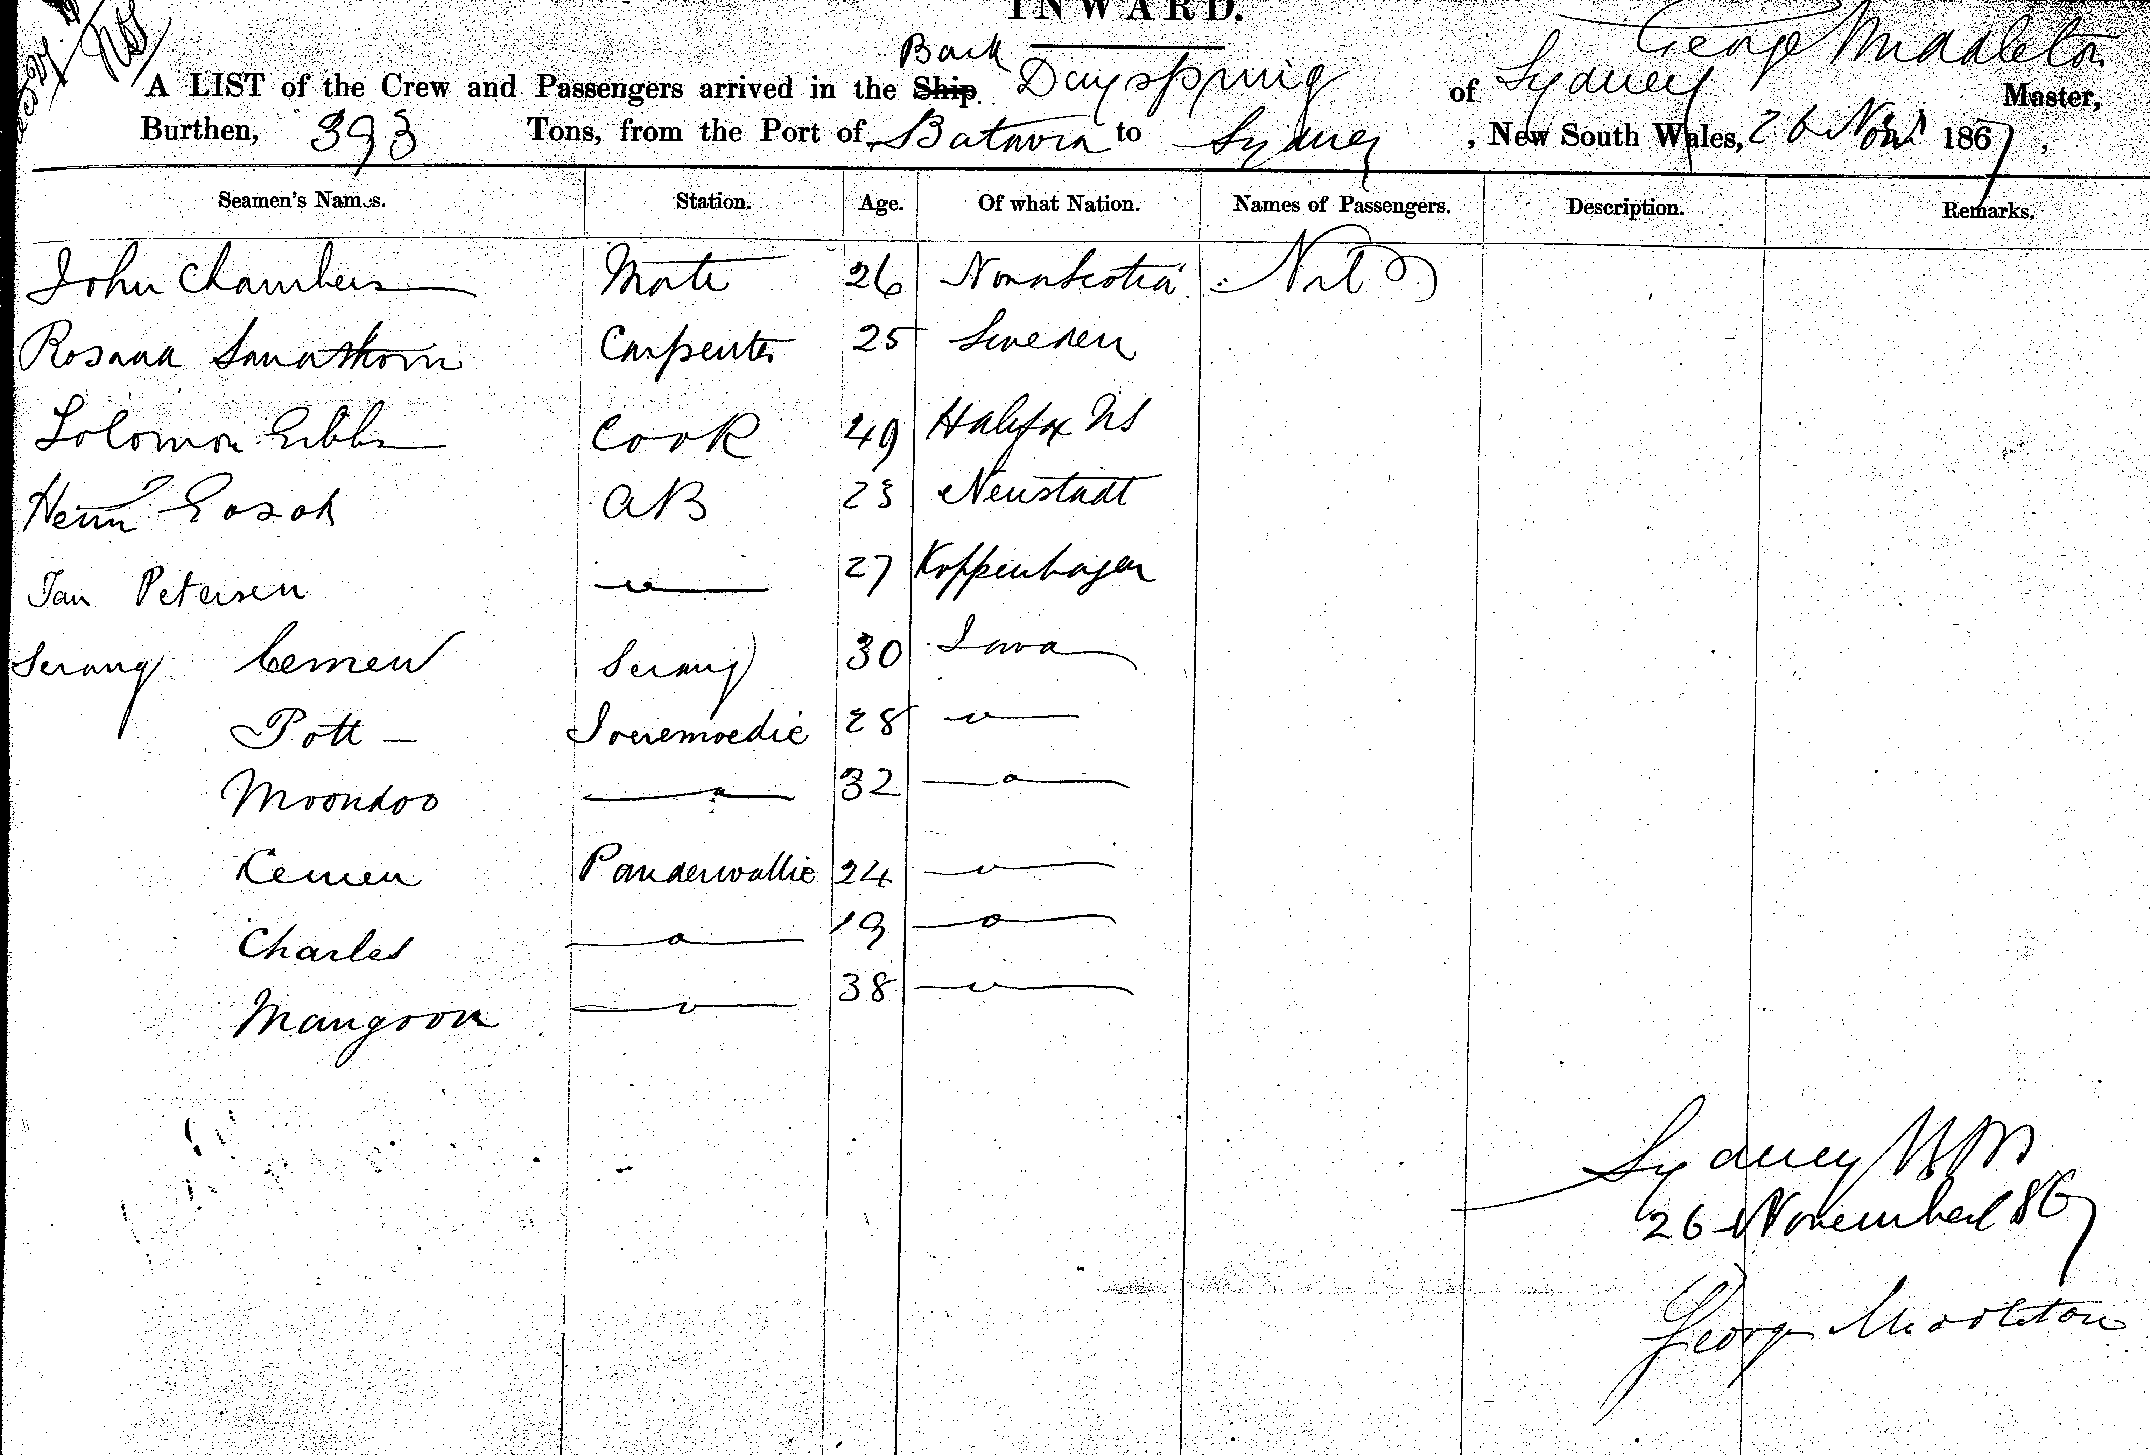 INWARD.
Bark
George Middleton
A LIST of the Crew and Passengers arrived in the Ship Dayspring of Sydney Master,
Burthen, 393 Tons, from the Port of Batavia to Sydney, New South Wales, 26 Novr 1867.
Seamen's Names. Station. Age. Of what Nation. Names of Passengers. Description. Remarks.
John Chambers Mate 26 Nova Scotia Nil
Carpenter 25 Sweden
Solomon Gibbs Cook 49 Halifax NS
AB 23 Neustadt
Jan Petersen 27 Koppenhagen
Serang Cemen Serang 30 Java
Pott 28
Moondoo 32
Kemen Panderwallie 24
Charles 19
Mangoon 38
Sydney
26 November 1867
George Middleton